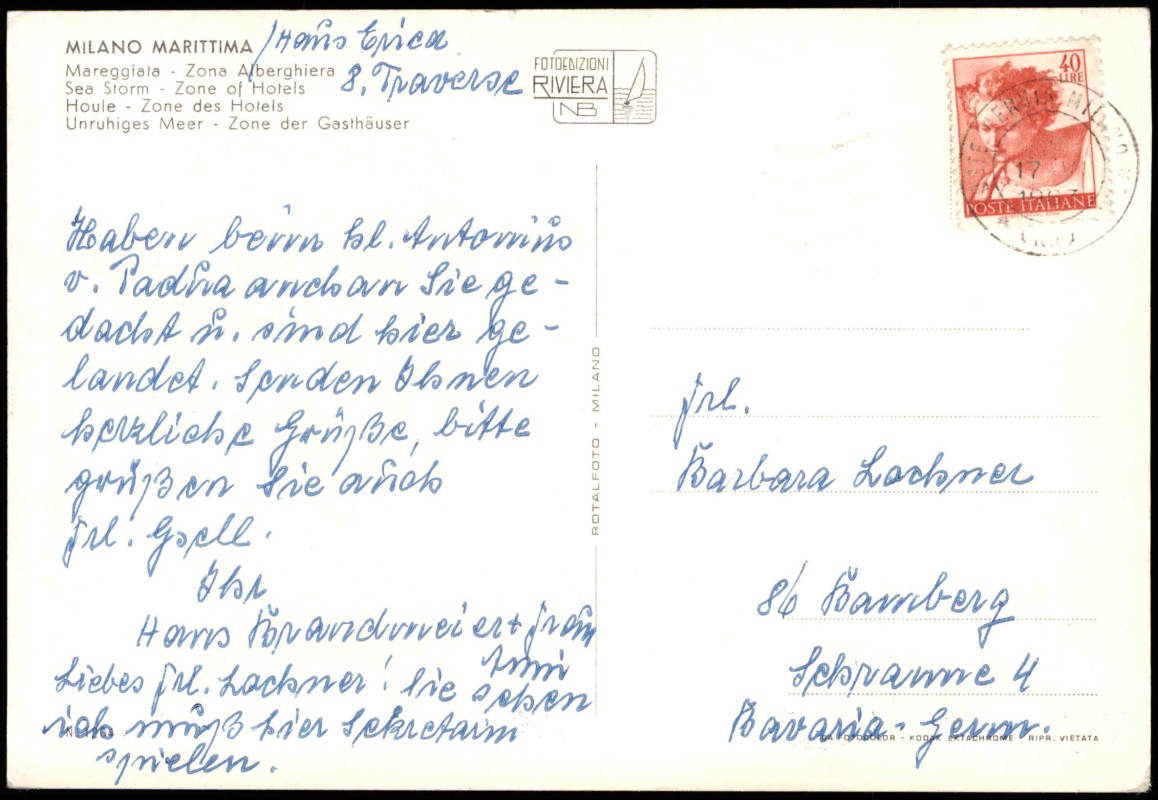 MILANO MARITTIMA / Haus Erica
Mareggiata - Zona Alberghiera
8. Traverse
Sea Storm - Zone of Hotels
Houle - Zone des Hotels
Unruhiges Meer - Zone der Gasthäuser
FOTOEDIZIONI
RIVIERA
NB
40
LIRE
POSTE ITALIANE
17
Haben beim hl. Antonius
v. Padua auch an Sie ge-
dacht u. sind hier ge-
landet. Senden Ihnen
herzliche Grüße, bitte
grüßen Sie auch
Frl. Gsell.
Ihr
Hans Brandmeier + Frau
Anni
Liebes Frl. Lochner! Sie sehen
ich muß hier Sekretärin
spielen.
ROTALFOTO - MILANO
Frl.
Barbara Lochner
86 Bamberg
Schranne 4
Bavaria-Germ.
DA FOTOCOLOR - KODAK EKTACHROME - RIPR. VIETATA